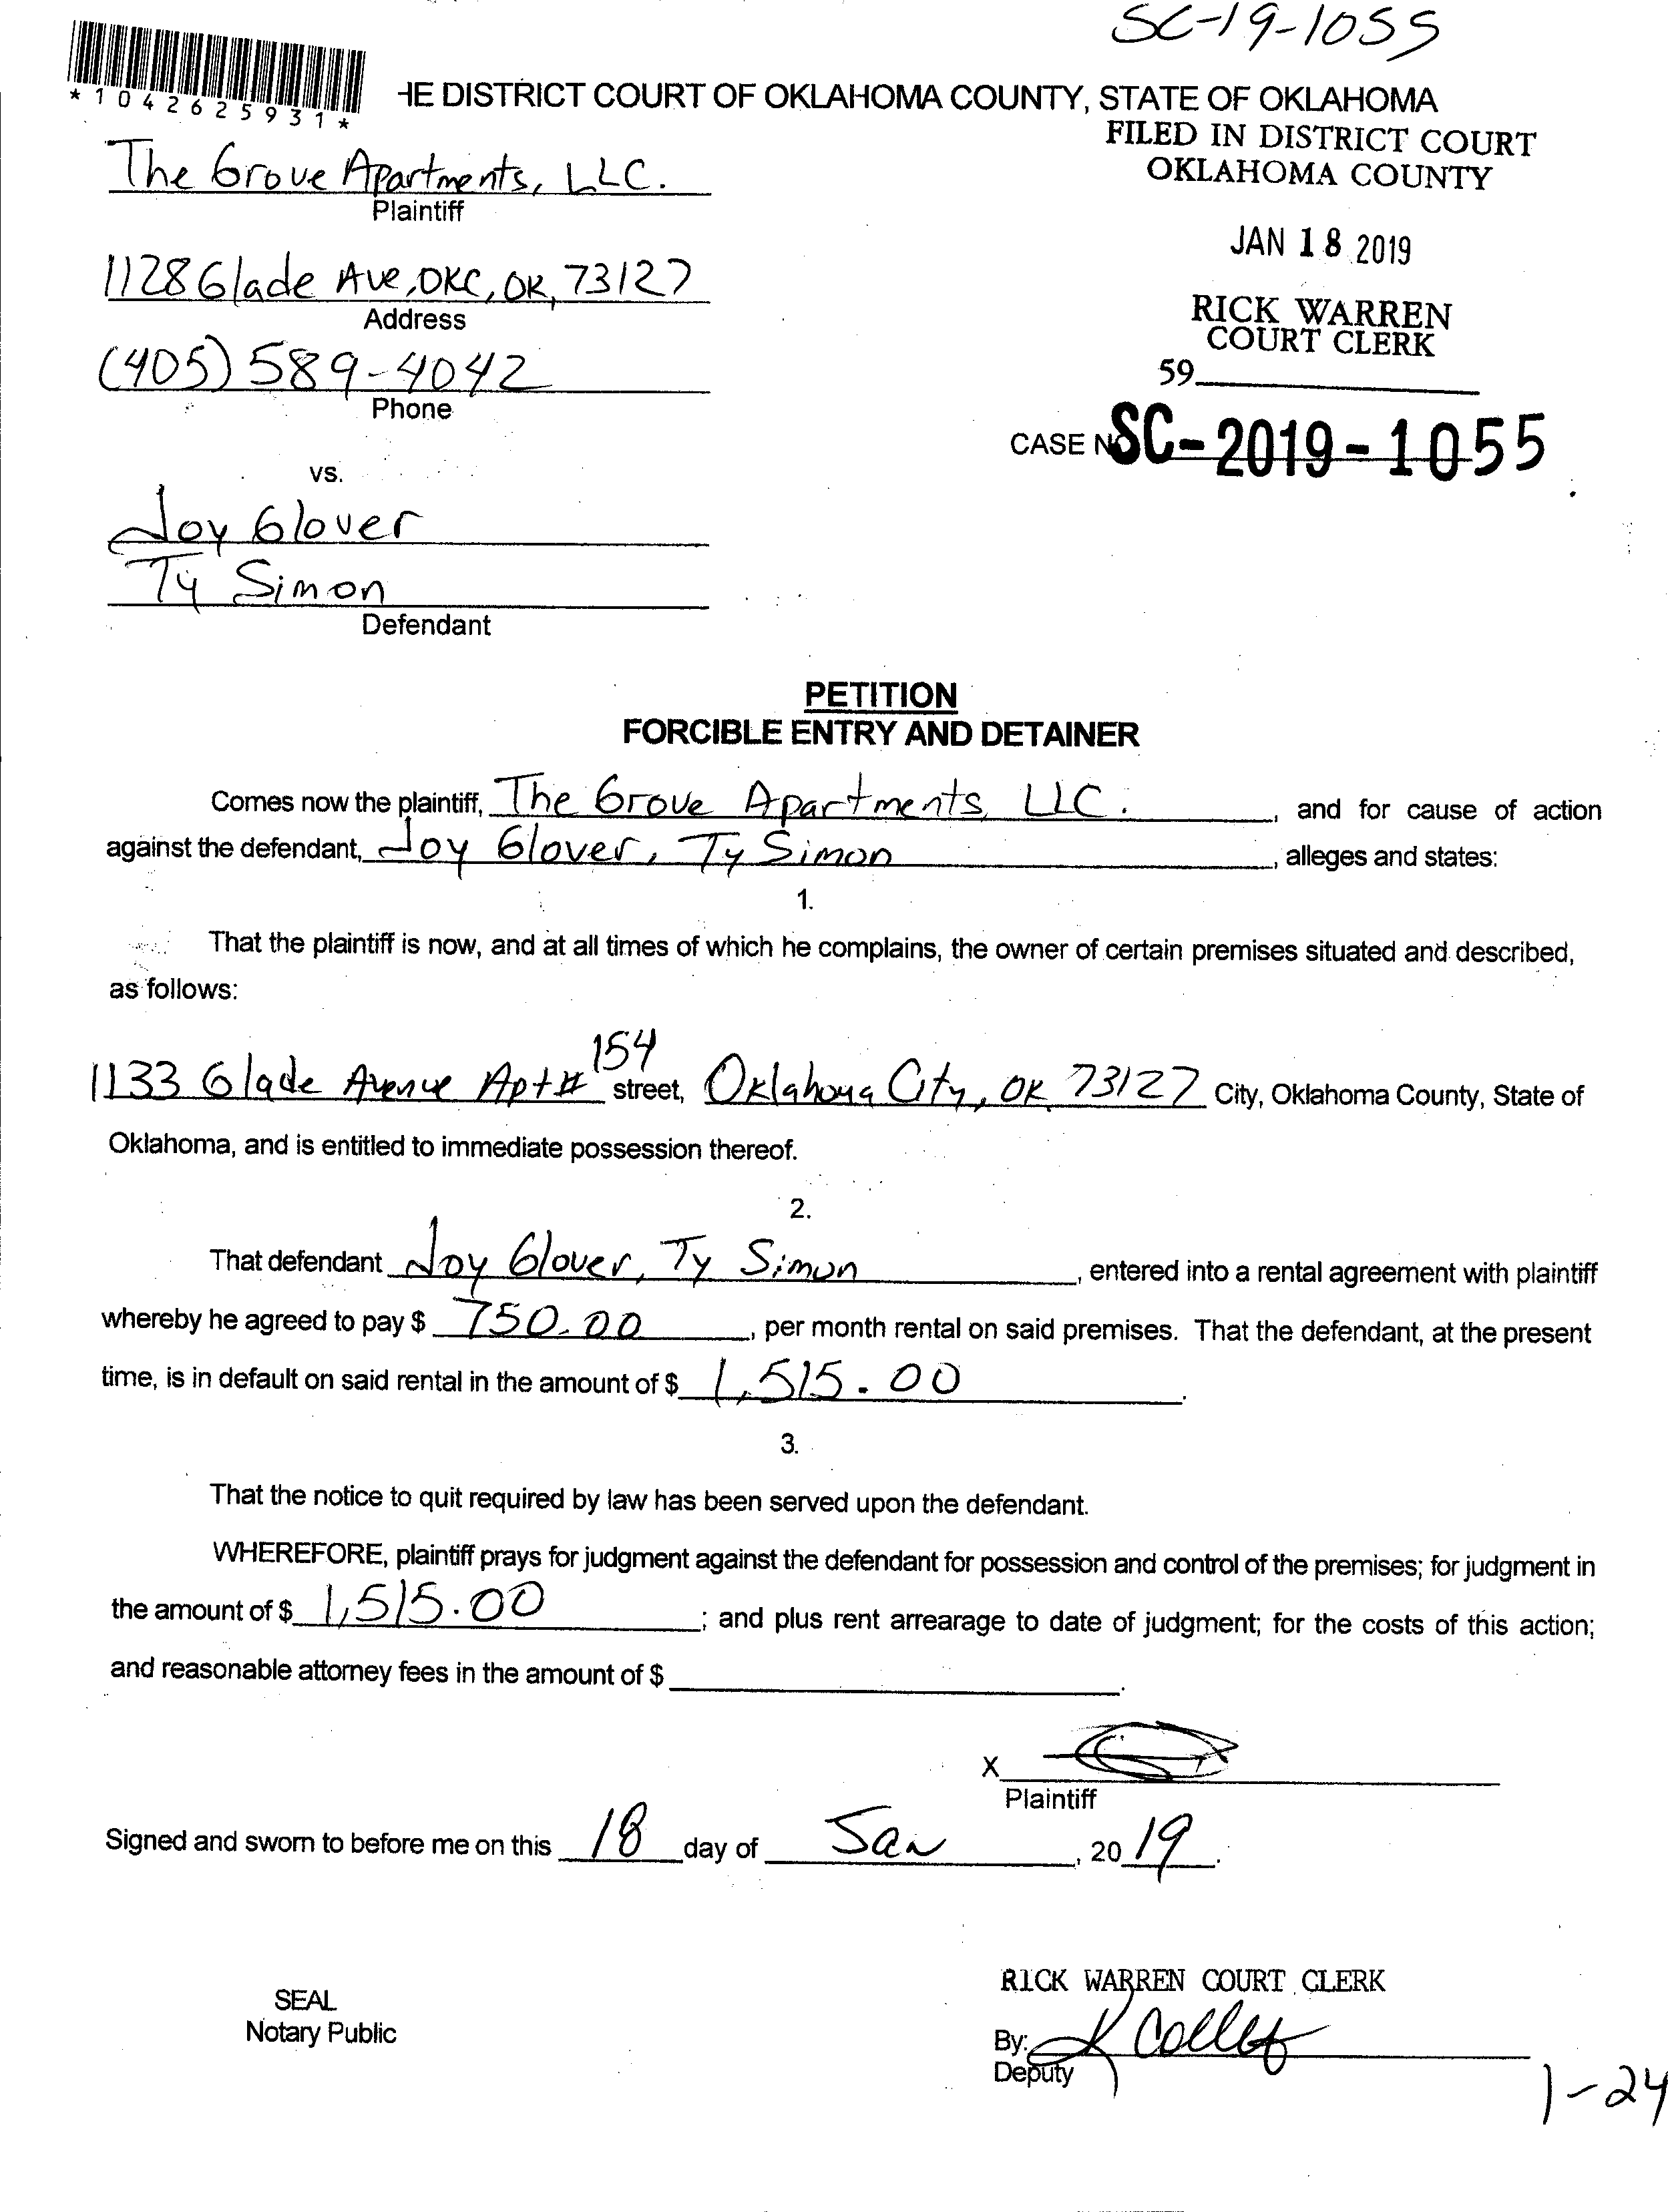 SC-19-1055
*1042625931*
HE DISTRICT COURT OF OKLAHOMA COUNTY, STATE OF OKLAHOMA
FILED IN DISTRICT COURT
OKLAHOMA COUNTY
The Grove Apartments, LLC.
Plaintiff
JAN 18 2019
1128 Glade Ave, OKC, OK, 73127
Address
RICK WARREN
COURT CLERK
(405) 589-4042
Phone
59
CASE NO SC-2019-1055
vs.
Joy Glover
Ty Simon
Defendant
PETITION
FORCIBLE ENTRY AND DETAINER
Comes now the plaintiff, The Grove Apartments, LLC. , and for cause of action
against the defendant, Joy Glover, Ty Simon , alleges and states:
1.
That the plaintiff is now, and at all times of which he complains, the owner of certain premises situated and described,
as follows:
1133 Glade Avenue Apt# 154 street, Oklahoma City, OK 73127 City, Oklahoma County, State of
Oklahoma, and is entitled to immediate possession thereof.
2.
That defendant Joy Glover, Ty Simon , entered into a rental agreement with plaintiff
whereby he agreed to pay $ 750.00 , per month rental on said premises. That the defendant, at the present
time, is in default on said rental in the amount of $ 1,515.00 .
3.
That the notice to quit required by law has been served upon the defendant.
WHEREFORE, plaintiff prays for judgment against the defendant for possession and control of the premises; for judgment in
the amount of $ 1,515.00 ; and plus rent arrearage to date of judgment; for the costs of this action;
and reasonable attorney fees in the amount of $ .
X
Plaintiff
Signed and sworn to before me on this 18 day of Jan , 20 19 .
RICK WARREN COURT CLERK
SEAL
Notary Public
By: K
Deputy
1-24